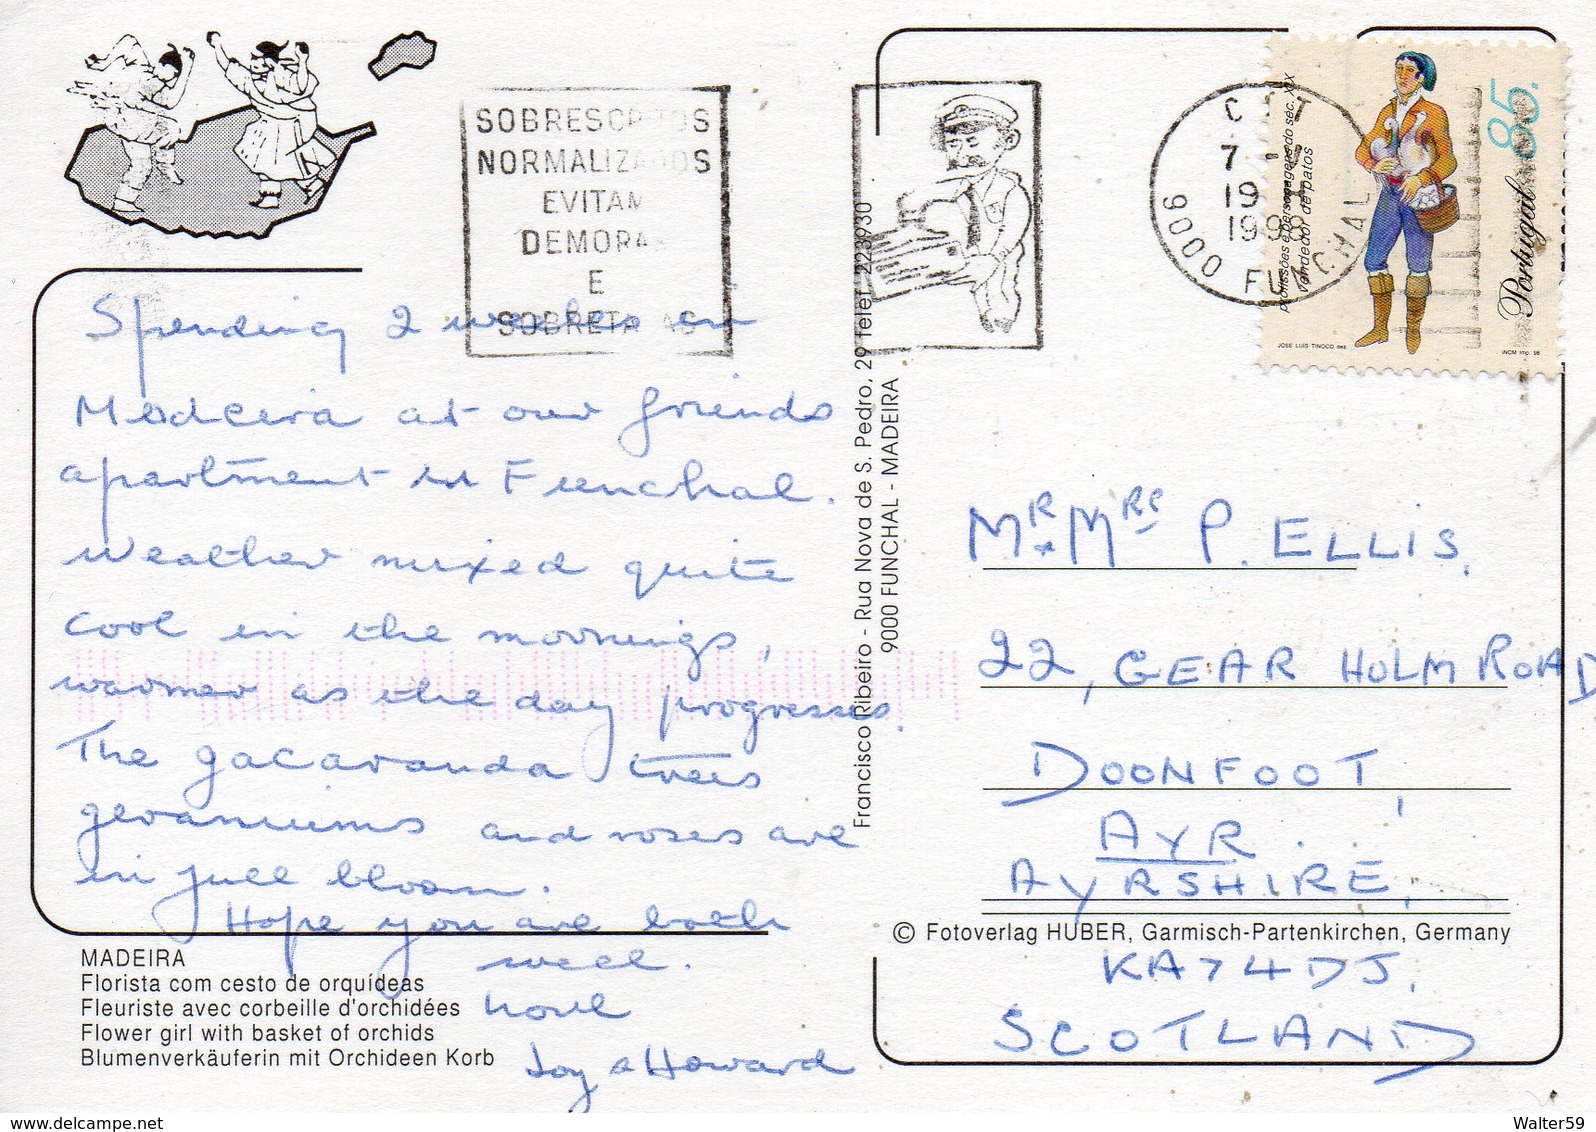 SOBRESCRITOS
NORMALIZADOS
EVITAM
DEMORAS
E
SOBRETAXAS
Spending 2 weeks in
Madeira at our friends
apartment in Funchal.
Weather mixed quite
cool in the mornings,
warmer as the day progresses.
The Jacaranda trees
geraniums and roses are
in full bloom.
Hope you are both
well.
love
Joy & Howard
MADEIRA
Florista com cesto de orquídeas
Fleuriste avec corbeille d'orchidées
Flower girl with basket of orchids
Blumenverkäuferin mit Orchideen Korb
Francisco Ribeiro - Rua Nova de S. Pedro, 29 Telef. 223930
9000 FUNCHAL - MADEIRA
7
19
1998
9000 FUNCHAL
profissões e personagens do sec. XIX
Vendedor de patos
85.
Portugal
JOSÉ LUIS TINOCO des.
INCM imp. 98
MR & MRS P. ELLIS,
22, GEAR HOLM ROAD
DOONFOOT,
AYR.
AYRSHIRE,
© Fotoverlag HUBER, Garmisch-Partenkirchen, Germany
KA7 4DJ,
SCOTLAND
Walter59